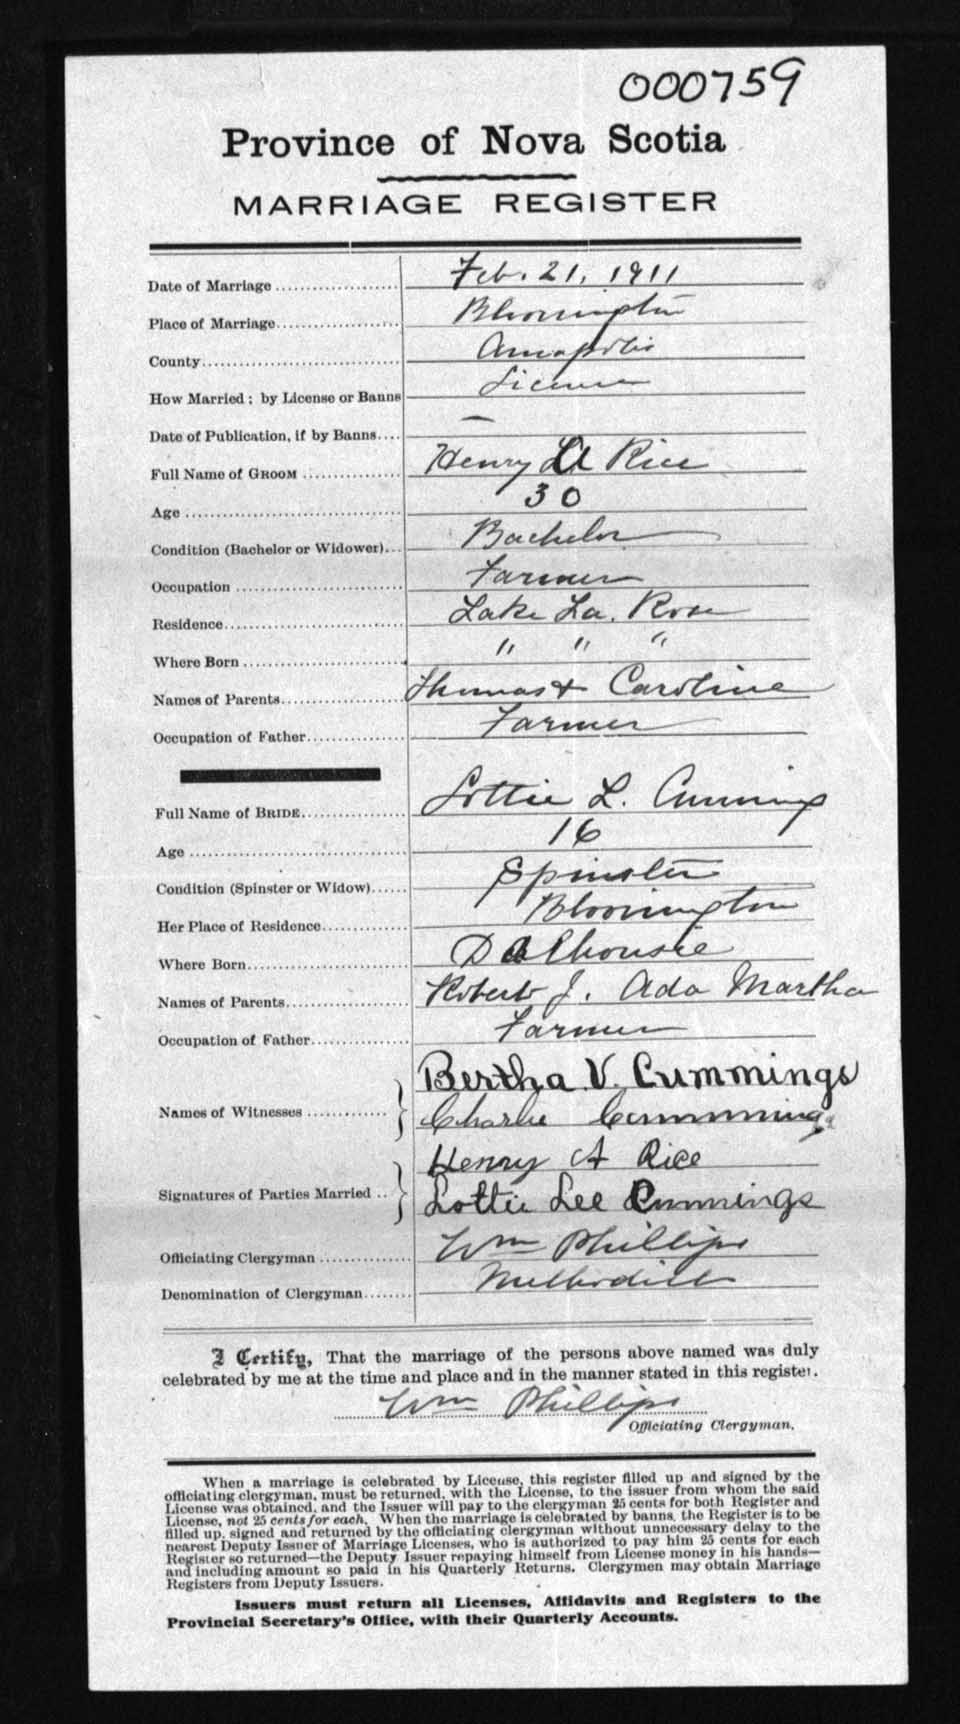 000759
Province of Nova Scotia
MARRIAGE REGISTER
Date of Marriage .................... Feb. 21, 1911
Place of Marriage.................... Bloomington
County................................ Annapolis
How Married ; by License or Banns License
Date of Publication, if by Banns.... —
Full Name of GROOM ................ Henry A Rice
Age .................................... 30
Condition (Bachelor or Widower)... Bachelor
Occupation ........................... Farmer
Residence............................. Lake La. Rose
Where Born ........................... " " "
Names of Parents.................... Thomas & Caroline
Occupation of Father................ Farmer
Full Name of BRIDE.................. Lottie L. Cummings
Age .................................... 16
Condition (Spinster or Widow)...... Spinster
Her Place of Residence.............. Bloomington
Where Born........................... Dalhousie
Names of Parents.................... Robert J. Ada Martha
Occupation of Father................ Farmer
Bertha V. Cummings
Names of Witnesses .............
Charlie Cummings
Henry A Rice
Signatures of Parties Married ..
Lottie Lee Cummings
Officiating Clergyman .............. Wm Phillips
Denomination of Clergyman........ Methodist
I Certify, That the marriage of the persons above named was duly
celebrated by me at the time and place and in the manner stated in this register.
Wm Phillips
Officiating Clergyman.
When a marriage is celebrated by License, this register filled up and signed by the
officiating clergyman, must be returned, with the License, to the issuer from whom the said
License was obtained, and the Issuer will pay to the clergyman 25 cents for both Register and
License, not 25 cents for each. When the marriage is celebrated by banns, the Register is to be
filled up, signed and returned by the officiating clergyman without unnecessary delay to the
nearest Deputy Issuer of Marriage Licenses, who is authorized to pay him 25 cents for each
Register so returned—the Deputy Issuer repaying himself from License money in his hands—
and including amount so paid in his Quarterly Returns. Clergymen may obtain Marriage
Registers from Deputy Issuers.
Issuers must return all Licenses, Affidavits and Registers to the
Provincial Secretary's Office, with their Quarterly Accounts.